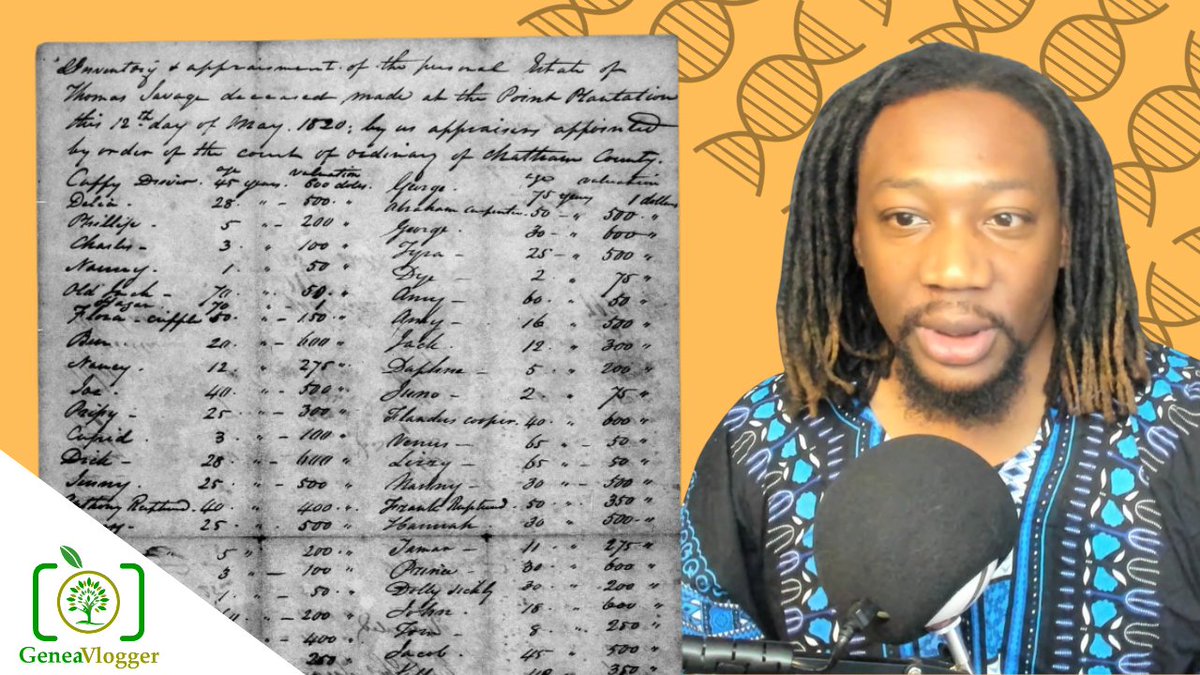 Inventory & appraisment of the personal Estate of
Thomas Savage deceased made at the Point Plantation
this 12th day of May. 1820; by us appraisers appointed
by order of the court of ordinary of Chatham County.
age valuation
Cuffy Driver. 45 years. 600 dolls.
Delia. 28 " - 500. "
Phillip 5 " - 200 "
Charles - 3 " 100 "
Nanny. 1 " 50 "
Old Jack - 70 " 50 "
70 " - 1 "
Flora - cripple 50 " - 150 "
Ben 20 " - 600 "
Nancy. 12 " 275 "
Joe 40 " - 500 "
25 " - 300 "
Cupid. 3 " - 100 "
Dick - 28 " - 600 "
Jenny. 25 " - 500 "
Anthony Ruptured. 40 " 400 "
25 " 500 "
5 " 200 "
3 " - 100 "
1 " - 50 "
200 "
400 "
250 "
age valuation
George. 75 years 1 dollars
Abraham carpenter. 50 - " 500 "
George. 30 - " 600 "
25 - " 500 "
2 " 75 "
Amy - 60 " 50 "
Amey - 16 " 500 "
Jack. 12 " 300 "
Daphne - 5 " 200 "
Juno - 2 " 75 "
Flanders cooper. 40 " 600 "
Venus - 65 " - 50 "
Lizzy - 65 " - 50 "
Nanny. 30 " - 500 "
Frank Ruptured 50 " 350 "
Hannah. 30 " 500 "
Tamar - 11 " 275 "
Prince - 30 " 600 "
Dolly sickly 30 " 200 "
John. 18 " 600 "
Tom 8 " 250 "
Jacob. 45 " 500 "
350 "
GeneaVlogger